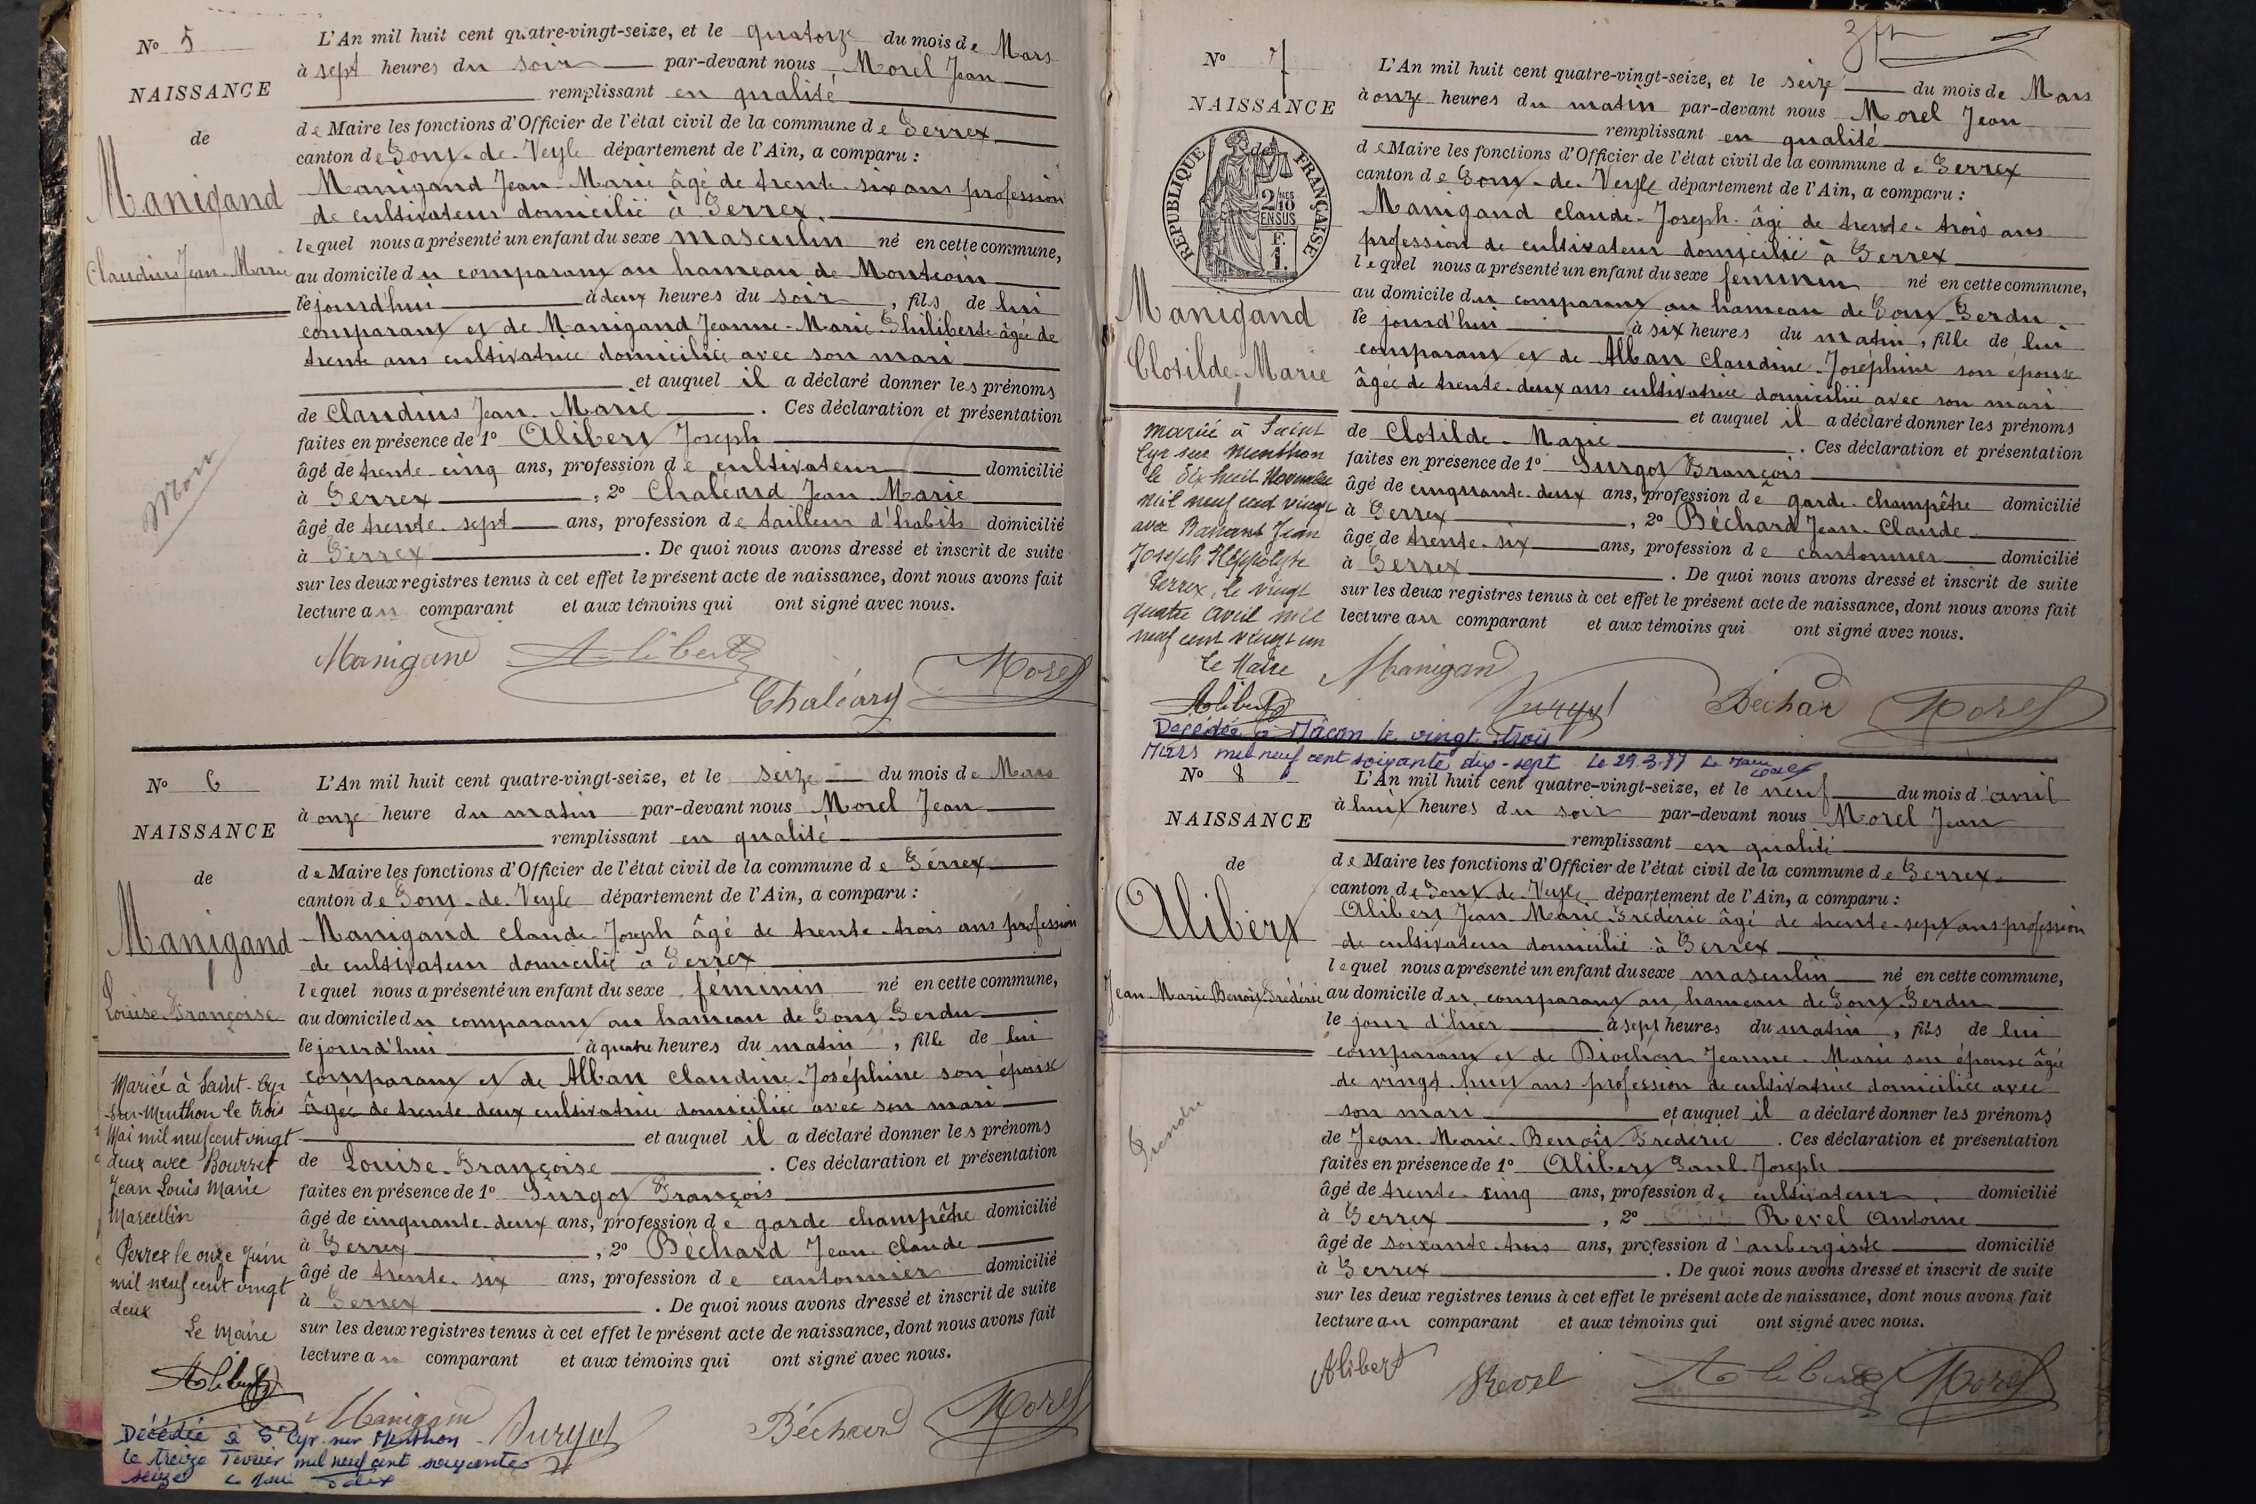 N° 5
NAISSANCE
de
Manigand
Claudius Jean-Marie
Mort
L'An mil huit cent quatre-vingt-seize, et le quatorze du mois de Mars
à sept heures du soir par-devant nous Morel Jean
remplissant en qualité
de Maire les fonctions d'Officier de l'état civil de la commune de Perrex
canton de Pont-de-Veyle département de l'Ain, a comparu :
Manigand Jean-Marie âgé de trente-six ans profession
de cultivateur domicilié à Perrex.
lequel nous a présenté un enfant du sexe masculin né en cette commune,
au domicile du comparant au hameau de Montcoin
le jourd'hui à deux heures du soir, fils de lui
comparant et de Manigand Jeanne-Marie Philiberte âgée de
trente ans cultivatrice domiciliée avec son mari
et auquel il a déclaré donner les prénoms
de Claudius Jean-Marie. Ces déclaration et présentation
faites en présence de 1° Alibert Joseph
âgé de trente-cinq ans, profession de cultivateur domicilié
à Perrex, 2° Chaléard Jean-Marie
âgé de trente-sept ans, profession de tailleur d'habits domicilié
à Perrex. De quoi nous avons dressé et inscrit de suite
sur les deux registres tenus à cet effet le présent acte de naissance, dont nous avons fait
lecture au comparant et aux témoins qui ont signé avec nous.
Manigand Alibert
Chaléard Morel
N° 6
NAISSANCE
de
Manigand
Louise-Françoise
Mariée à Saint-Cyr
sur-Menthon le trois
Mai mil neuf cent vingt
deux avec Bourret
Jean Louis Marie
Marcellin
Perrex le onze Juin
mil neuf cent vingt
deux
Le Maire
Alibert
Décédée à St Cyr sur Menthon
le treize Février mil neuf cent soixante
seize Le Maire
L'An mil huit cent quatre-vingt-seize, et le seize du mois de Mars
à onze heure du matin par-devant nous Morel Jean
remplissant en qualité
de Maire les fonctions d'Officier de l'état civil de la commune de Perrex
canton de Pont-de-Veyle département de l'Ain, a comparu :
Manigand Claude-Joseph âgé de trente-trois ans profession
de cultivateur domicilié à Perrex
lequel nous a présenté un enfant du sexe féminin né en cette commune,
au domicile du comparant au hameau de Pont Perdu
le jourd'hui à quatre heures du matin, fille de lui
comparant et de Alban Claudine-Joséphine son épouse
âgée de trente-deux cultivatrice domiciliée avec son mari
et auquel il a déclaré donner les prénoms
de Louise-Françoise. Ces déclaration et présentation
faites en présence de 1° Surgot François
âgé de cinquante-deux ans, profession de garde champêtre domicilié
à Perrex, 2° Béchard Jean-Claude
âgé de trente-six ans, profession de cantonnier domicilié
à Perrex. De quoi nous avons dressé et inscrit de suite
sur les deux registres tenus à cet effet le présent acte de naissance, dont nous avons fait
lecture au comparant et aux témoins qui ont signé avec nous.
Manigand Surgot Béchard Morel
N° 7
NAISSANCE
de
RÉPUBLIQUE FRANÇAISE
2/10 EN SUS
F.
1.
Manigand
Clotilde-Marie
mariée à Saint
Cyr sur Menthon
le dix huit Novembre
mil neuf cent vingt
avec Bassant Jean
Joseph Hippolyte
Perrex, le vingt
quatre avril mil
neuf cent vingt un
Le Maire
Alibert
Décédée à Mâcon le vingt trois
Mars mil neuf cent soixante dix-sept Le 29.3.77 Le Maire
L'An mil huit cent quatre-vingt-seize, et le seize du mois de Mars
à onze heures du matin par-devant nous Morel Jean
remplissant en qualité
de Maire les fonctions d'Officier de l'état civil de la commune de Perrex
canton de Pont-de-Veyle département de l'Ain, a comparu :
Manigand Claude-Joseph âgé de trente-trois ans
profession de cultivateur domicilié à Perrex
lequel nous a présenté un enfant du sexe féminin né en cette commune,
au domicile du comparant au hameau de Pont Perdu.
le jourd'hui à six heures du matin, fille de lui
comparant et de Alban Claudine-Joséphine son épouse
âgée de trente-deux ans cultivatrice domiciliée avec son mari
et auquel il a déclaré donner les prénoms
de Clotilde-Marie. Ces déclaration et présentation
faites en présence de 1° Surgot François
âgé de cinquante-deux ans, profession de garde-champêtre domicilié
à Perrex, 2° Béchard Jean-Claude
âgé de trente-six ans, profession de cantonnier domicilié
à Perrex. De quoi nous avons dressé et inscrit de suite
sur les deux registres tenus à cet effet le présent acte de naissance, dont nous avons fait
lecture au comparant et aux témoins qui ont signé avec nous.
Manigand Surgot Béchard Morel
N° 8
NAISSANCE
de
Alibert
Jean-Marie Benoît Frédéric
L'An mil huit cent quatre-vingt-seize, et le neuf du mois d'avril
à huit heures du soir par-devant nous Morel Jean
remplissant en qualité
de Maire les fonctions d'Officier de l'état civil de la commune de Perrex
canton de Pont de Veyle département de l'Ain, a comparu :
Alibert Jean Marie Frédéric âgé de trente-sept ans profession
de cultivateur domicilié à Perrex
lequel nous a présenté un enfant du sexe masculin né en cette commune,
au domicile du comparant au hameau de Pont Perdu
le jour d'hier à sept heures du matin, fils de lui
comparant et de Diochon Jeanne-Marie son épouse âgée
de vingt-huit ans profession de cultivatrice domiciliée avec
son mari et auquel il a déclaré donner les prénoms
de Jean-Marie-Benoît Frédéric. Ces déclaration et présentation
faites en présence de 1° Alibert Paul-Joseph
âgé de trente-cinq ans, profession de cultivateur domicilié
à Perrex, 2° Revel Antoine
âgé de soixante-trois ans, profession d'aubergiste domicilié
à Perrex. De quoi nous avons dressé et inscrit de suite
sur les deux registres tenus à cet effet le présent acte de naissance, dont nous avons fait
lecture au comparant et aux témoins qui ont signé avec nous.
Alibert Revel Alibert Morel